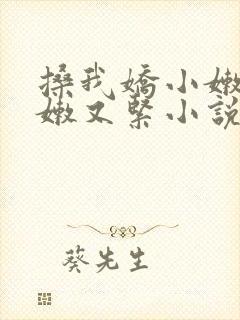 搡我嬌小嫩
嫩又緊小說
葵先生